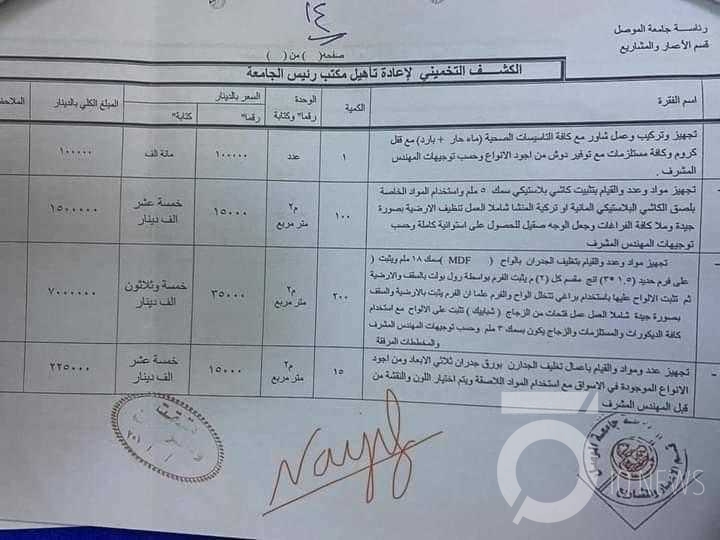 ١٤
رئاسة جامعة الموصل
قسم الأعمار والمشاريع
صفحة( ) من ( )
الكشف التخميني لإعادة تأهيل مكتب رئيس الجامعة
اسم الفقرة
الكمية
الوحدة
رقما" وكتابة
السعر بالدينار
رقما"
كتابة"
المبلغ الكلي بالدينار
الملاحظ
تجهيز وتركيب وعمل شاور مع كافة التاسيسات الصحية (ماء حار + بارد) مع قفل
كروم وكافة مستلزمات مع توفير دوش من اجود الانواع وحسب توجيهات المهندس
المشرف .
١
عدد
١٠٠٠٠٠
مائة الف
١٠٠٠٠٠
تجهيز مواد وعدد والقيام بتثبيت كاشي بلاستيكي سمك ٥ ملم واستخدام المواد الخاصة
بلصق الكاشي البلاستيكي المانية او تركية المنشا شاملا العمل تنظيف الارضية بصورة
جيدة وملا كافة الفراغات وجعل الوجه صقيل للحصول على استوائية كاملة وحسب
توجيهات المهندس المشرف
١٠٠
م٢
متر مربع
١٥٠٠٠
خمسة عشر
الف دينار
١٥٠٠٠٠٠
تجهيز مواد وعدد والقيام بتغليف الجدران بالواح ( MDF ) سمك ١٨ ملم ويثبت (
على فرم حديد (١.٥ *٣) انج مقسم كل (٢) م يثبت الفرم بواسطة رول بولت بالسقف والارضية
ثم تثبت الالواح عليها باستخدام براغي تتخلل الواح والفرم علما ان الفرم يثبت بالارضية والسقف
بصورة جيدة شاملا العمل عمل فتحات من الزجاج ( شبابيك ) تثبت على الالواح مع استخدام
كافة الديكورات والمستلزمات والزجاج يكون بسمك ٣ ملم وحسب توجيهات المهندس المشرف
والمخططات المرفقة
٢٠٠
م٢
متر مربع
٣٥٠٠٠
خمسة وثلاثون
الف دينار
٧٠٠٠٠٠٠
تجهيز عدد ومواد والقيام باعمال تغليف الجدارن بورق جدران ثلاثي الابعاد ومن اجود
الانواع الموجودة في الاسواق مع استخدام المواد اللاصقة ويتم اختيار اللون والنقشة من
قبل المهندس المشرف
١٥
م٢
متر مربع
١٥٠٠٠
خمسة عشر
الف دينار
٢٢٥٠٠٠
Nayif
جامعة الموصل
قسم الاعمار والمشاريع
NEWS